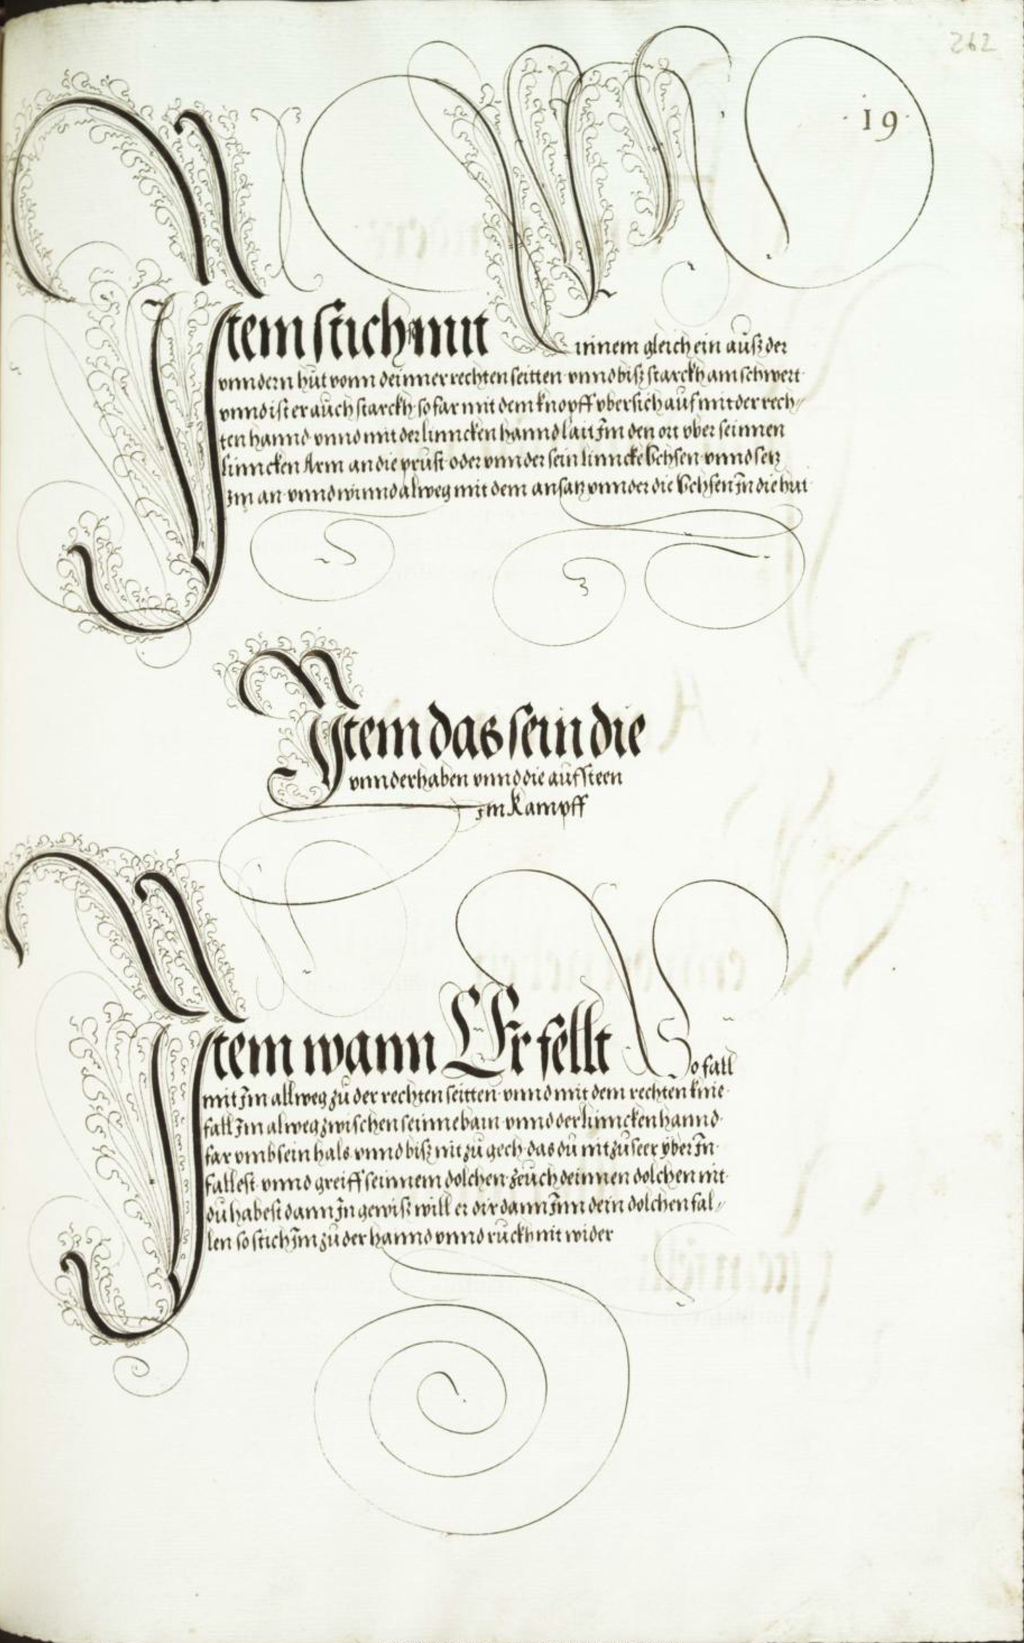 262
·19·
Item stich mit Innem gleich ein auß der
vnndern hut vonn deinner rechten seitten vnnd biß starckh am schwert
vnnd ist er auch starckh so far mit dem knopff vbersich auf mit der rech/
ten hannd vnnd mit der linncken hannd laß Im den ort vber seinnen
linncken Arm an die prust oder vnnder sein linncke Vchsen vnnd setz
Im an vnnd winnd alweg mit dem ansatz vnnder die Vchsen In die hut
Item das sein die
vnnderhaben vnnd die aufsteen
Im Kampff
Item wann Er fellt So fall
mit Im allweg zu der rechten seitten vnnd mit dem rechten knie
fall Im alweg zwischen seinne bain vnnd der linncken hannd
far vmb sein hals vnnd biß nit zu gech das du nit zu seer vber In
fallest vnnd greiff seinnem dolchen zeuch deinnen dolchen nit
du habest dann In gewiß will er dir dann Inn dein dolchen fal/
len so stich Im zu der hannd vnnd ruckh nit wider